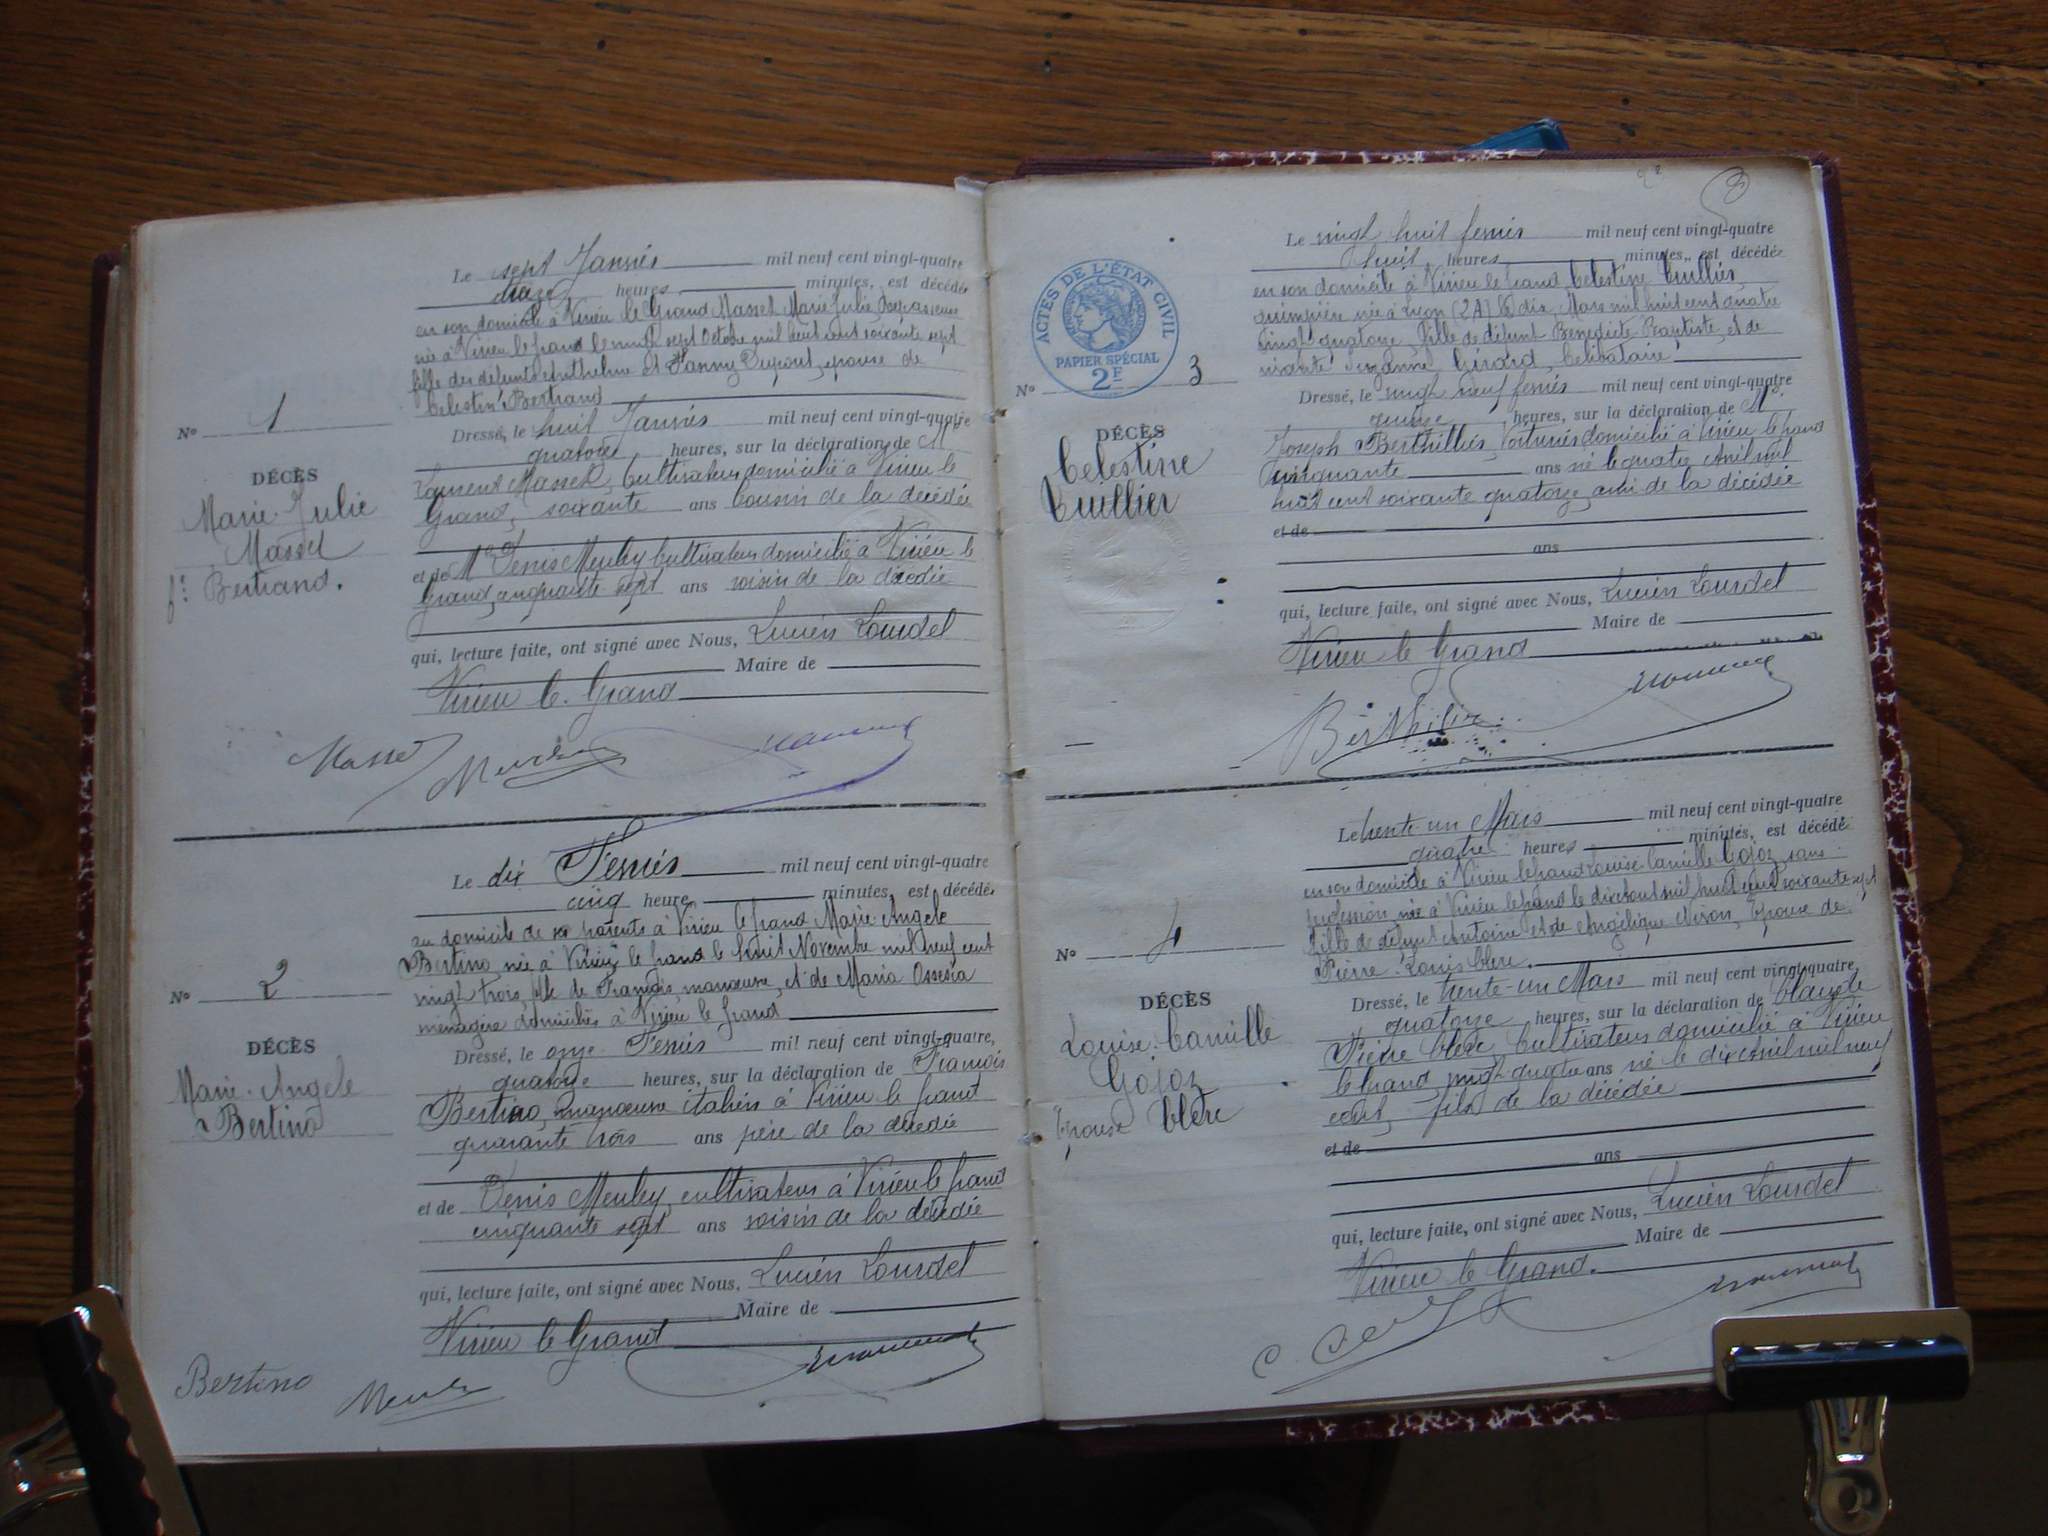 Le sept Janvier mil neuf cent vingt-quatre
heures minutes, est décédée
en son domicile à Virieu le Grand Masset Marie Julie
née à Virieu le grand le vingt sept Octobre mil huit cent soixante sept
fille des défunts Anthelme et Fanny Dupont, épouse de
Celestin Bertrand
Nº 1
Dressé, le huit Janvier mil neuf cent vingt-quatre
quatorze heures, sur la déclaration de M
Laurent Masset, Cultivateur domicilié à Virieu le
Grand, soixante ans Cousin de la décédée
DÉCÈS
Marie-Julie
Masset
Bertrand.
et de Mr Denis Meuley Cultivateur domicilié à Virieu le
Grand, cinquante sept ans voisin de la décédée
qui, lecture faite, ont signé avec Nous, Lucien Lourdel
Maire de
Virieu le Grand
Masset
Le dix Février mil neuf cent vingt-quatre
cinq heures minutes, est décédée
au domicile de ses parents à Virieu le grand Marie-Angele
Bertino, née à Virieu le grand le huit Novembre mil neuf cent
vingt trois, fille de François, manoeuvre, et de Maria
ménagère domiciliés à Virieu le grand
Nº 2
Dressé, le onze Février mil neuf cent vingt-quatre,
quatorze heures, sur la déclaration de François
Bertino, manoeuvre italien à Virieu le grand
quarante trois ans père de la décédée
DÉCÈS
Marie-Angele
Bertino
et de Denis Meuley, cultivateur à Virieu le grand
cinquante sept ans voisin de la décédée
qui, lecture faite, ont signé avec Nous, Lucien Lourdel
Maire de
Virieu le Grand
Bertino
ACTES DE L'ÉTAT CIVIL
PAPIER SPÉCIAL
2F
Le vingt huit février mil neuf cent vingt-quatre
huit heures minutes, est décédée
en son domicile à Virieu le grand Celestine Cuillier
née à Lyon dix Mars mil huit cent quatre
vingt quatorze, fille de défunt Benedicte Baptiste, et de
vivante Suzanne Girard, Celibataire
Nº 3
Dressé, le vingt neuf février mil neuf cent vingt-quatre
quinze heures, sur la déclaration de Mr
Joseph Berthillier, Voiturier domicilié à Virieu le grand
Cinquante ans né le quatre Avril mil
huit cent soixante quatorze, ami de la décédée
DÉCÈS
Celestine
Cuillier
et de
ans
qui, lecture faite, ont signé avec Nous, Lucien Lourdel
Maire de
Virieu le Grand
Le trente-un Mars mil neuf cent vingt-quatre
quatre heures minutes, est décédée
en son domicile à Virieu le grand Louise-Camille Gojoz, sans
profession, née à Virieu le grand le dix août mil huit cent soixante sept
fille de défunt Antoine et de Angélique Niron, Epouse de
Pierre-Louis Clerc.
Nº 4
Dressé, le trente-un Mars mil neuf cent vingt-quatre
quatorze heures, sur la déclaration de Claude
Pierre Clerc, Cultivateur domicilié à Virieu
le Grand, vingt quatre ans né le dix Avril mil neuf
cent, fils de la décédée
DÉCÈS
Louise-Camille
Gojoz
Epouse Clerc
et de
ans
qui, lecture faite, ont signé avec Nous, Lucien Lourdel
Maire de
Virieu le Grand.